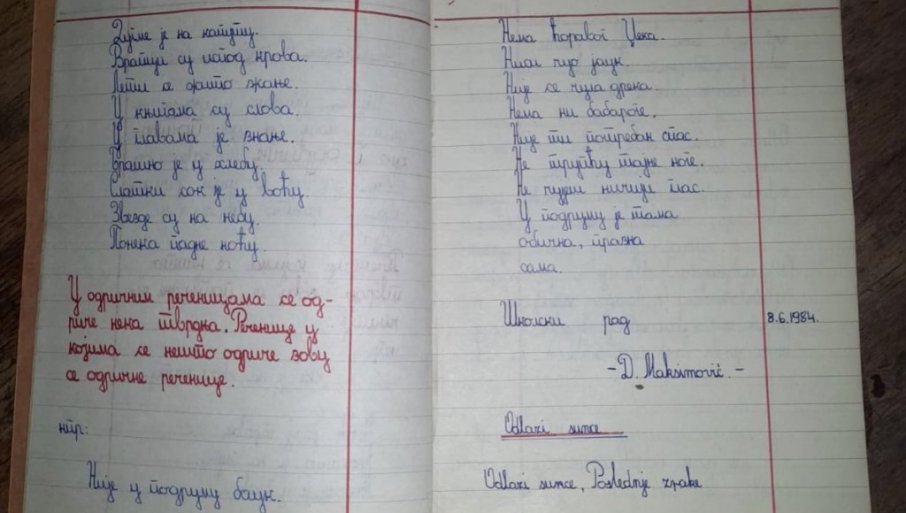 Дугме је на капуту.
Врапци су испод крова.
Лети се жито жање.
У књигама су слова.
У главама је знање.
Брашно је у хлебу.
Слатки сок је у воћу.
Звезде су на небу.
Понека падне ноћу.
У одричним реченицама се од-
риче нека тврдња. Реченице у
којима се нешто одриче зову
се одричне реченице.
нпр:
Није у подруму баук.
Нема ћоравог Цека.
Ниси чуо јаук.
Није се чула дрека.
Нема ни бабароге.
Није ти потребан спас.
Не трупћу тајне ноге.
Не чујеш ничији глас.
У подруму је тама
обична, празна
сама.
Школски рад 8.6.1984.
-D. Maksimović. -
Odlazi sunce
Odlazi sunce, Poslednje zrake